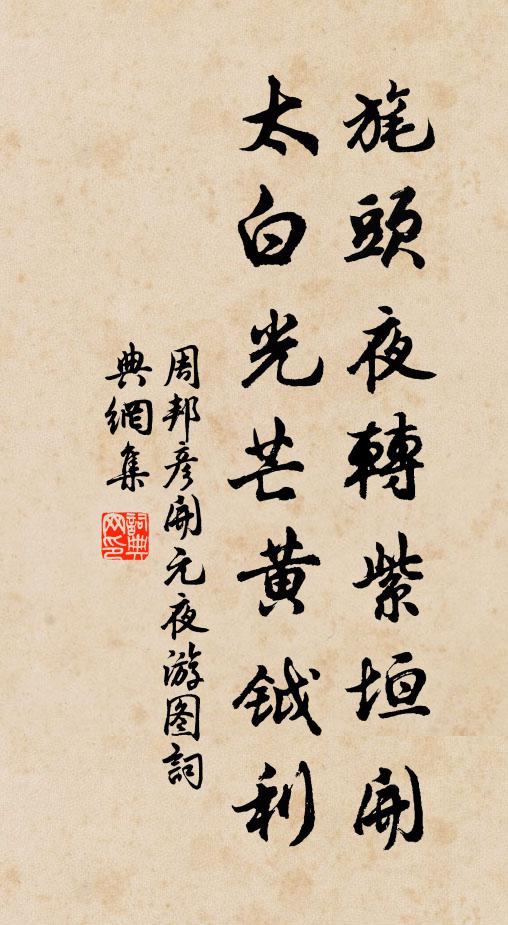 旄頭夜轉紫垣開
太白光芒黃鉞利
周邦彥開元夜游图詞
典網集
詞典網印